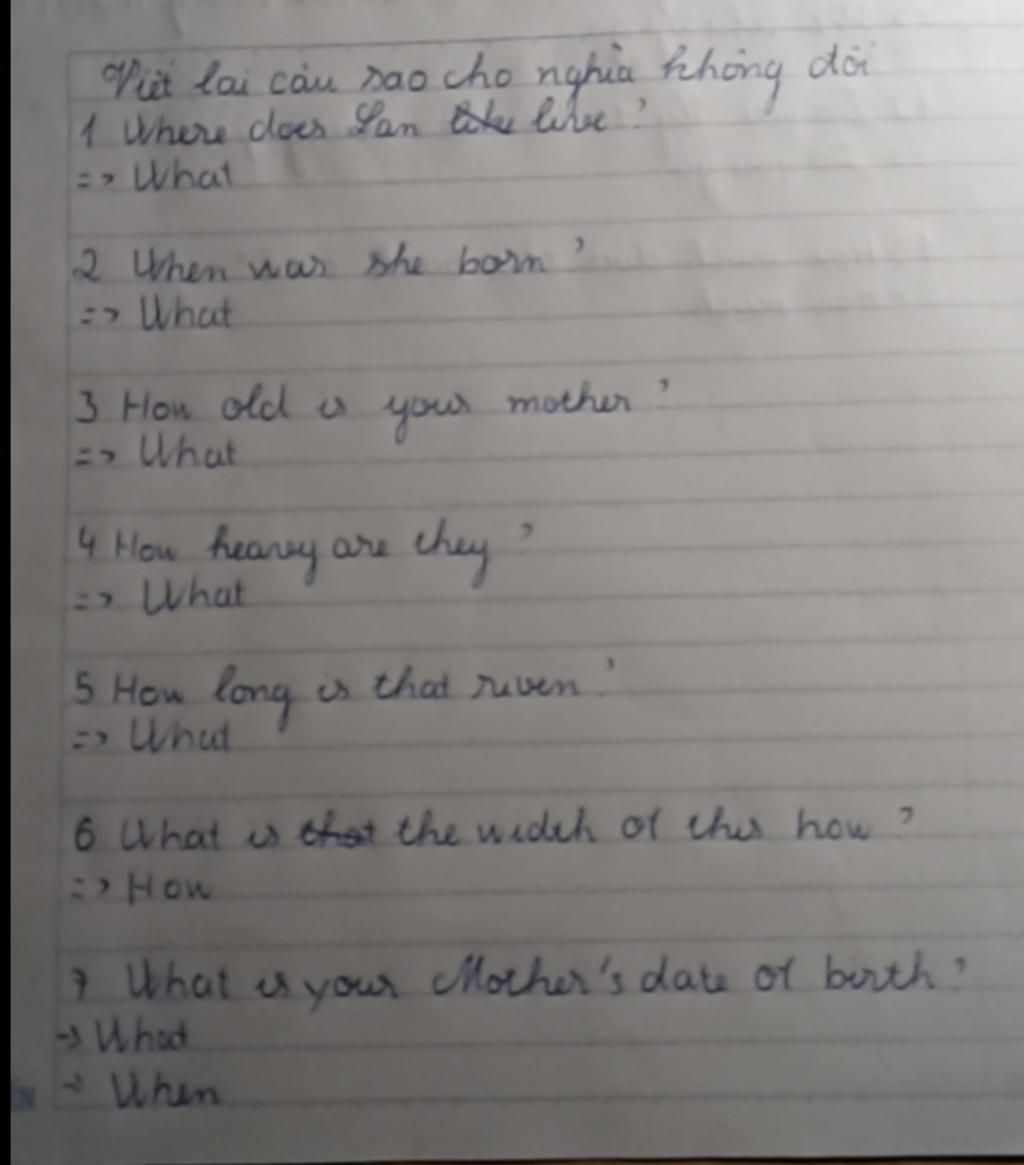 Viết lại câu sao cho nghĩa không đổi
1 Where does Lan like live?
=> What
2 When was she born?
=> What
3 How old is your mother?
=> What
4 How heavy are they?
=> What
5 How long is that river?
=> What
6 What is that the width of this how?
=> How
7 What is your Mother's date of birth?
-> What
-> When